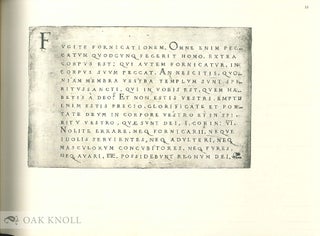 FVGITE FORNICATIONEM, OMNE ENIM PEC
CATVM QVODCVNQ; FEGERIT HOMO, EXTRA
CORPVS EST; QVI AVTEM FORNICATVR, IN
CORPVS SVVM PECCAT. AN NESCITIS, QVO,
NIAM MEMBRA VESTRA TEMPLVM SVNT SPI
RITVSSANCTI, QVI IN VOBIS EST, QVEM HA,
BETIS A DEO? ET NON ESTIS VESTRI. EMPTI
ENIM ESTIS PRECIO, GLORIFICATE ET POR
TATE DEVM IN CORPORE VESTRO ET IN SPI
RITV VESTRO, QVAE SVNT DEI, I. CORIN: VI.
NOLITE ERRARE, NEQ; FORNICARII, NEQVE
IDOLIS SERVIENTES, NEQ; ADVLTERI, NEQ;
MASCVLORVM CONCVBITORES, NEQ; FVRES,
NEQ; AVARI, &C. POSSIDEBVNT REGNVM DEI,
OAK KNOLL